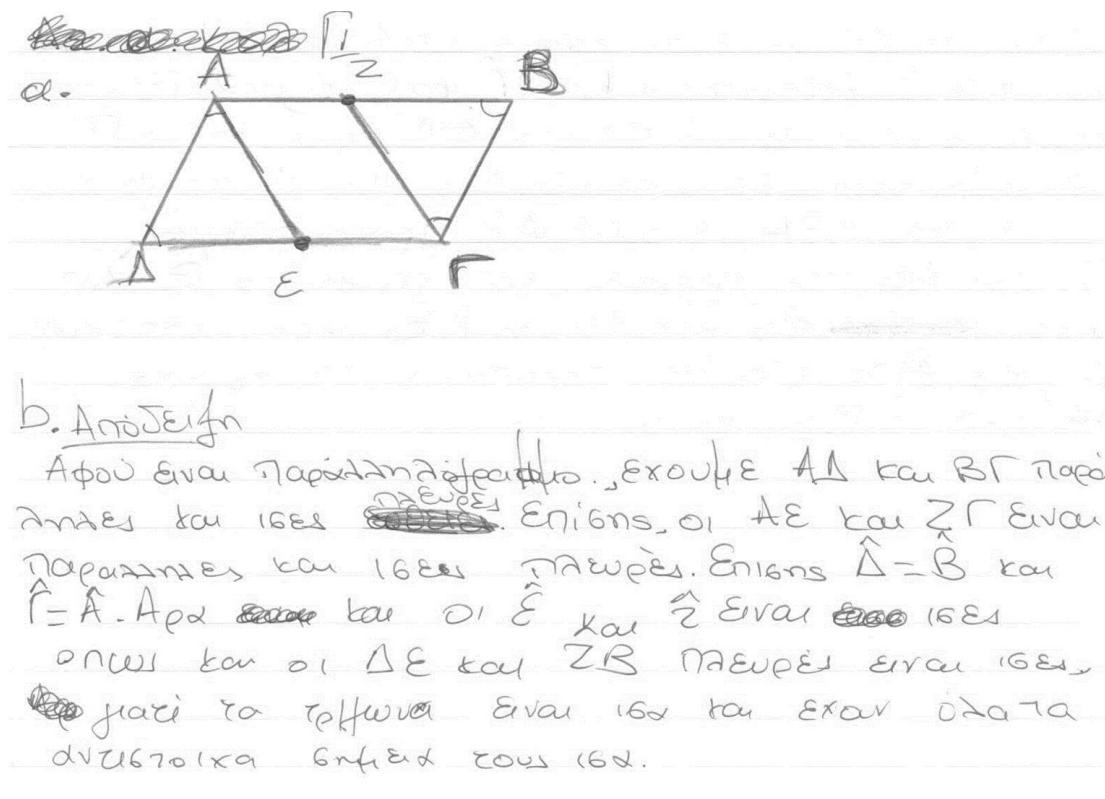 Γ1
α.
Α Ζ Β
Δ Ε Γ
b. Απόδειξη
Αφού ειναι παράλληλόγραμμο., εχουμε ΑΔ και ΒΓ παρά
λληλες και ισες πλευρές. Επίσης, οι ΑΕ και ΖΓ ειναι
παραλληλες και ισες πλευρές. Επισης Δ̂=Β̂ και
Γ̂=Â. Αρα και οι Ε̂ και Ζ̂ ειναι ισες
οπως και οι ΔΕ και ΖΒ πλευρές ειναι ισες,
γιατί τα τρίγωνα ειναι ισα και εχουν όλα τα
αντιστοιχα σημεια τους ισα.